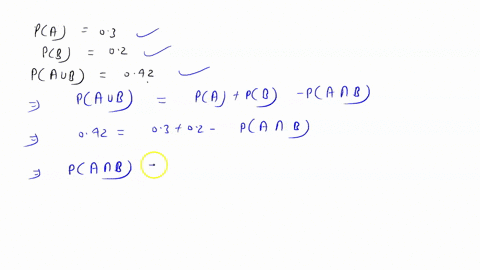 P(A) = 0.3 ✓
P(B) = 0.2 ✓
P(A∪B) = 0.42 ✓
⇒ P(A∪B) = P(A) + P(B) - P(A∩B)
⇒ 0.42 = 0.3 + 0.2 - P(A∩B)
⇒ P(A∩B) -